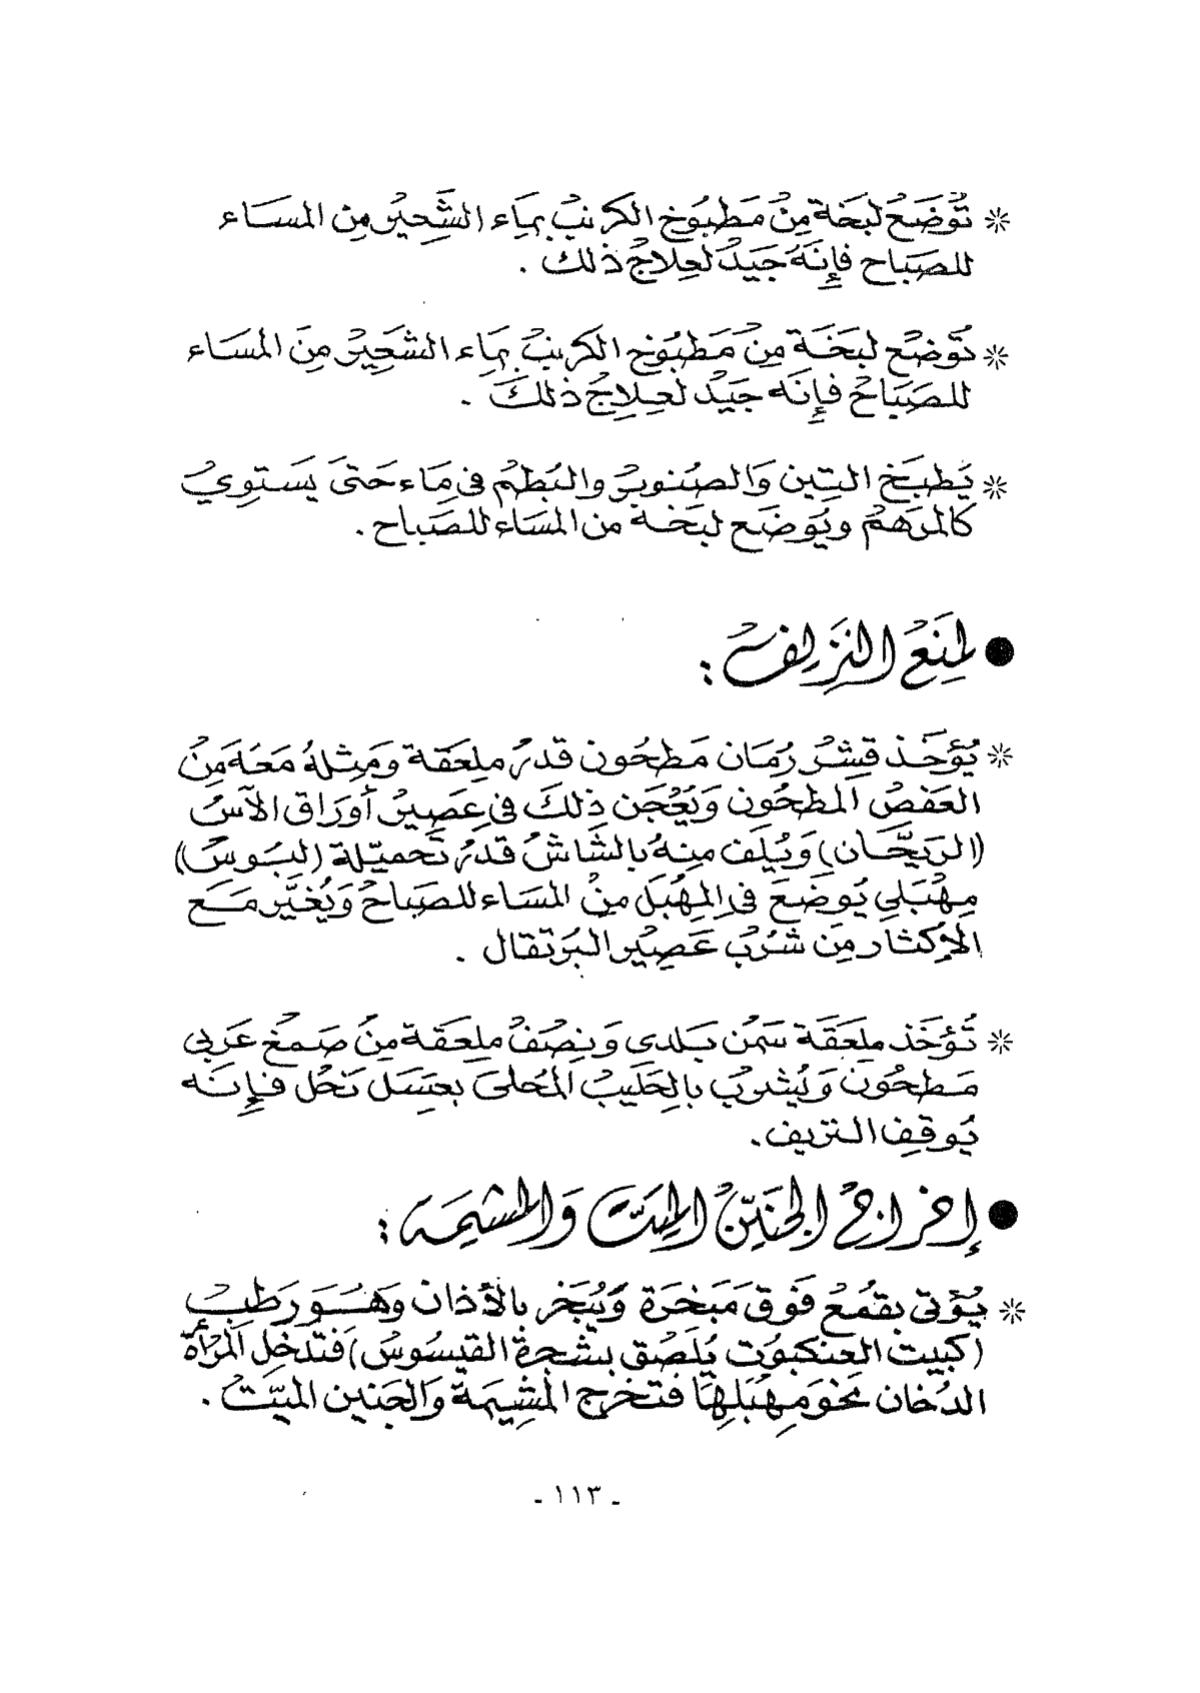 * تُوضَعُ لبَخة مِنْ مَطبُوخ الكرنبْ بمَاء الشَّعِيْر مِن المسَاء
للصَبَاح فإِنَهُ جَيَدْ لعِلاجْ ذلك .
* تُوضعْ لبَخَة مِنْ مَطبُوخ الكرَنبْ بمَاء الشعَيِرْ مِنَ المسَاء
للصَبَاحْ فإِنَه جَيَدْ لعِلاجْ ذلكَ .
* يَطبَخ التِين وَالصُنوبرْ والبُطمْ فى مَاء حَتىَ يَستوِيْ
كالمرَهمْ ويُوَضَع لبَخَة من المسَاء للصَباح .
● لمِنَعْ النَزِيفْ :
* يُؤخَذ قِشرْ رُمَان مَطحُون قدرْ ملِعَقة وَمَثِلهُ مَعَه مَنِْ
العَفصْ المطحُون وَيَعْجَن ذِلكَ فى عِصَيِرْ أورَاق الآسْ
(الرَيَحَّان) وَيُلَف مِنهُ بالشَاشْ قَدرْ تحَميّلة (لبَوسْ)
مِهْبَلي يُوضَعَ فى المِهْبَل مِنْ المسَاء للصَباحْ وَيُغيَّر مَع
الإكثار مِن شُرْب عَصِيْر البُرتقال .
* تُؤخَذ ملِعَقَة سَمْن بَلدى وَنِصَفْ ملِعَقة مِنْ صَمغْ عَربى
مَطحُونْ وَيُشربْ بالحَلَيبْ المُحلىَ بعسَل نَحْل فإِنَه
يُوقِف النزيف .
● إخراجْ الجَنَينْ الميَتَّ وَالمشيمَة :
* يُؤتى بقمَعْ فَوق مَبَخرَة وَيُبَخر بالأذان وَهُوَ رَطبْ
(كبيت العنكبوُت يُلصَق بشجَرة القيسُوسْ) فتدَخِل المرْأة
الدُخان نَحْوَ مِهْبَلِهَا فتَخْرج المشِيمَة وَالجَنين الميَتّْ .
- ١١٣ -